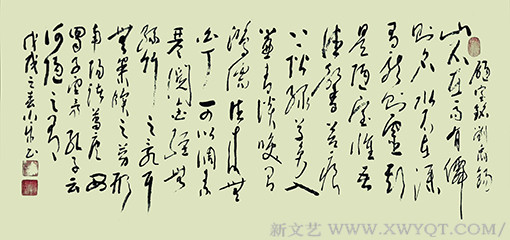 陋室銘劉禹錫
山不在高有僊
則名水不在深
有龍則靈斯
是陋室惟吾
德馨苔痕
上階綠草色入
簾青談笑有
鴻儒往來無
白丁可以調素
琴閱金經無
絲竹之亂耳
無案牘之勞形
南陽諸葛廬西
蜀子雲亭孔子云
何陋之有
戊戌之春
新文艺 WWW.XWYQT.COM/